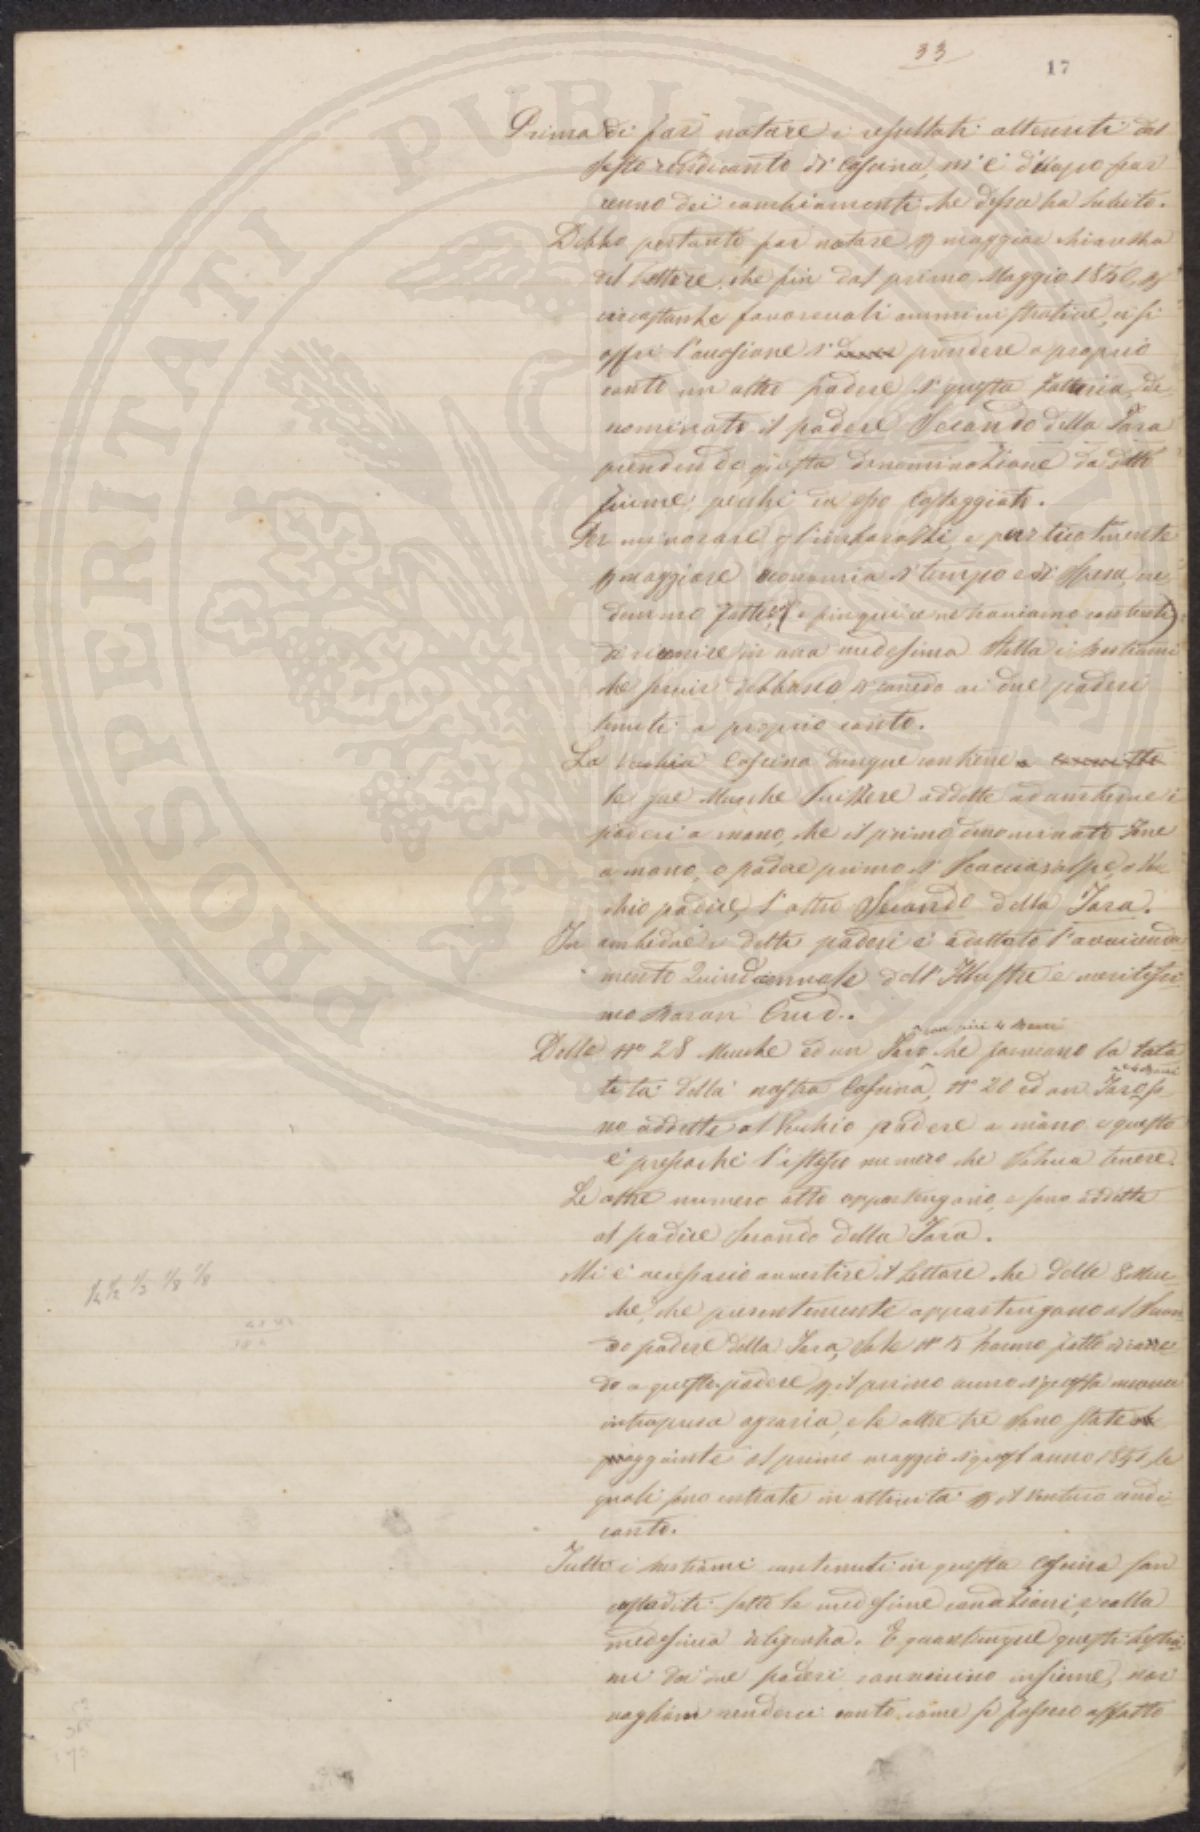 33
17
Prima di far notare i resultati ottenuti dal
sesto rendiconto di Cascina, m'è d'uopo far
cenno dei cambiamenti che dessa ha subito.
Debbo pertanto far notare p maggior chiarezza
del lettore, che fin dal primo Maggio 1850, p
circostanze favorevoli amministrative, ci si
offrì l'occasione di prendere a proprio
conto un altro podere di questa fattoria, de
nominato il podere Secondo della Fara
prendendo questa denominazione da detto
fiume, perchè da esso costeggiato.
Per minorare gl'imbarazzi, e particolarmente
p maggiore economia di tempo e di spesa, ve
demmo fattibile e fin qui ce ne troviamo contenti)
di riunire in una medesima stalla i bestiami
che servir debbano di corredo ai due poderi
tenuti a proprio conto.
La vecchia Cascina dunque contiene
le due Mucche Svizzere addette ad ambedue i
poderi a mano, che il primo denominato
a mano, o podere primo di Scacciavolpe, o Vec
chio podere, l'altro Secondo della Fara.
In ambedue i detti poderi è adottato l'avvicenda
mento Quindicennale dell'Illustre e meritissi
mo Baron Crud.
Delle No 28 Mucche ed un Toro che formano la tota
lità della nostra Cascina, No 20 ed un Toro so
no addette al Vecchio podere a mano e questo
è pressochè l'istesso numero che soleva tenere.
Le altre numero otto appartengono, e sono addette
al podere secondo della Fara.
Mi è necessario avvertire il lettore che delle 8 Muc
che, che presentemente appartengono al Secon
do podere della Fara, sole No 5 hanno fatto di corre
do a questo podere p il primo anno di questa nuova
intrapresa agraria, e le altre tre sono state
aggiunte al primo maggio di quest'anno 1851, le
quali sono entrate in attività p il venturo rendi
conto.
Tutti i bestiami contenuti in questa Cascina son
custoditi sotto le medesime condizioni, e colla
medesima diligenza. E quantunque questi bestia
mi dei due poderi convivino insieme, noi
vogliam renderci conto come se fossero affatto
½ ½ ⅓ ⅛ ⅛